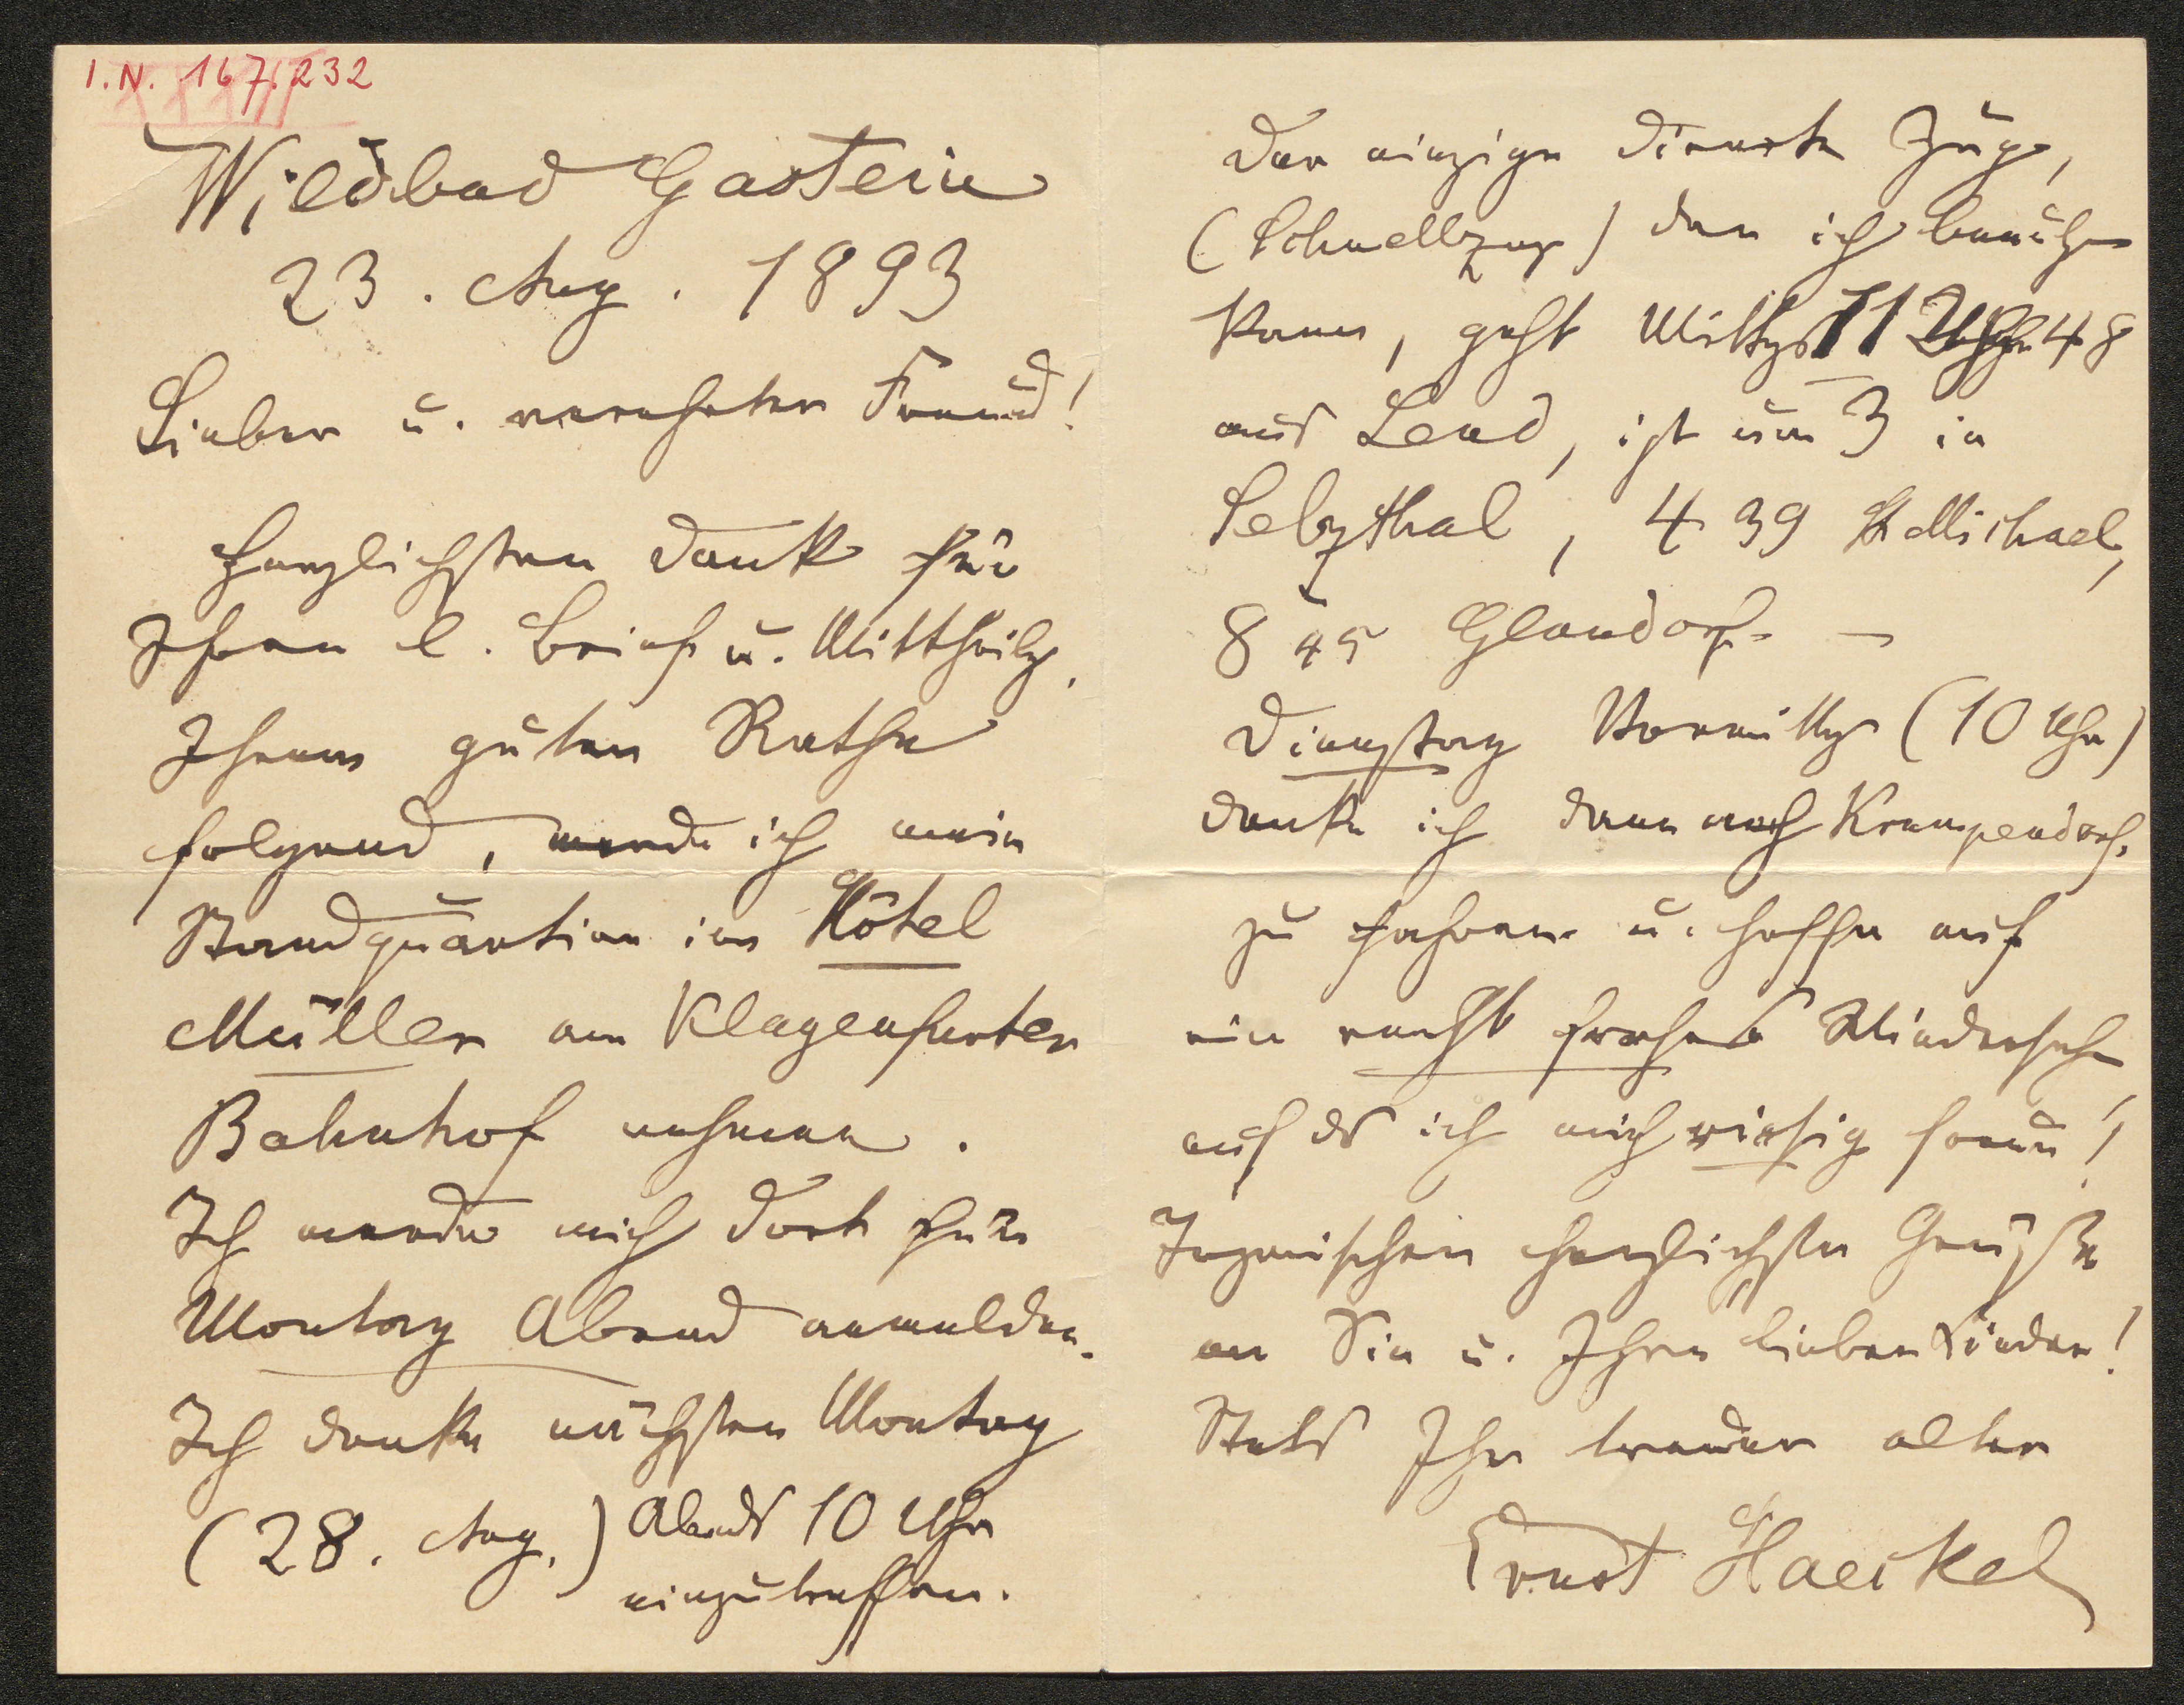 I.N. 167.232
Wildbad Gastein
23. Aug. 1893
Lieber u. verehrter Freund!
Herzlichsten Dank für
Ihren l. Brief u. Mittheilg.
Ihrem guten Rathe
folgend, werde ich mein
Standquartier im Hôtel
Müller am Klagenfurter
Bahnhof nehmen.
Ich werde mich dort für
Montag Abend anmelden.
Ich denke nächsten Montag
(28. Aug.) Abends 10 Uhr
einzutreffen.
Der einzige directe Zug,
(Schnellzug) den ich benutzen
kann, geht Mittgs 11 Uhr 48
aus Lend, ist um 3 in
Selzthal, 4 39 St Michael,
8 45 Glandorf. —
Dienstag Vormittg (10 Uhr)
denke ich dann nach Krumpendorf.
zu fahren u. hoffe auf
ein recht frohes Wiedersehn
auf ds ich mich riesig freue!
Inzwischen herzlichste Grüße
an Sie u. Ihre lieben Kinder!
Stets Ihr treuer alter
Ernst Haeckel